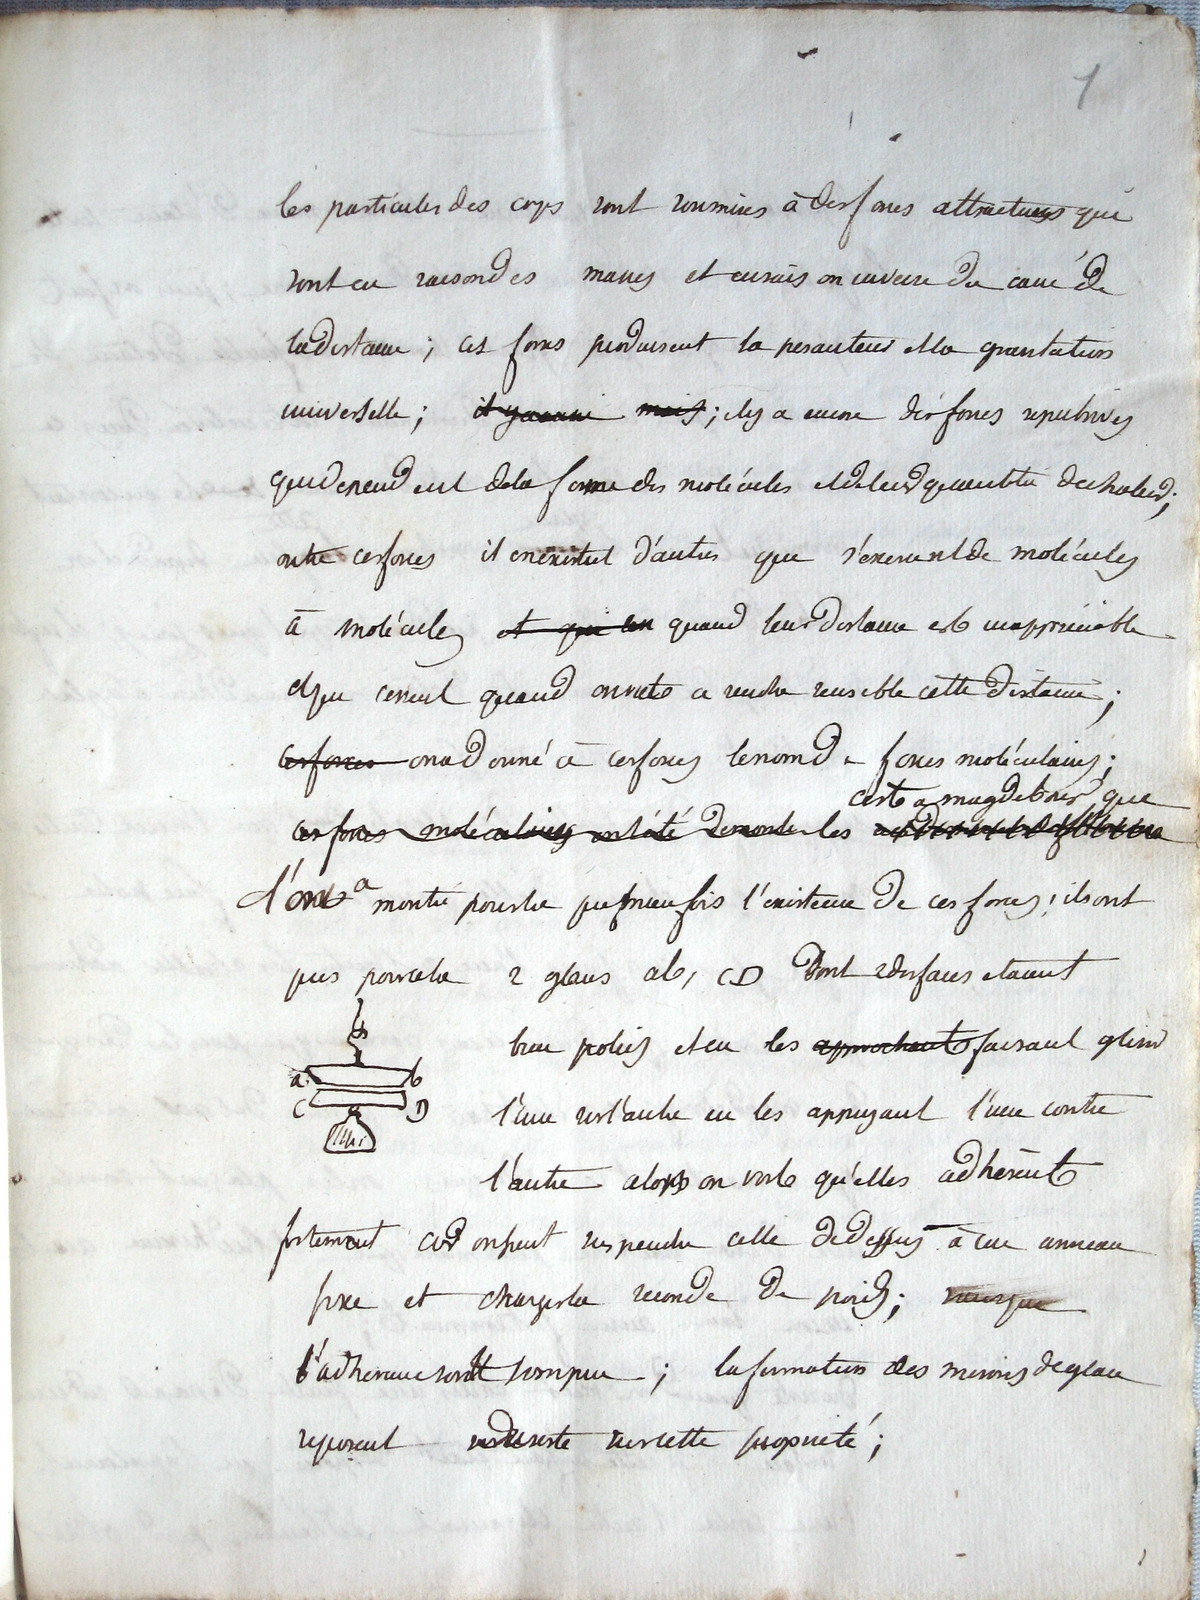 1
les particules des corps sont soumises à des forces attractives qui
sont en raison des masses et en raison inverse du carré de
la distance ; ces forces produisent la pesanteur et la gravitation
universelle ; il y a aussi mais ; il y a encore des forces repulsives
qui dependent de la forme des molécules et de leur quantité de chaleur ;
outre ces forces il en existe d'autres que s'exercent de molécules
à molécules et qui en quand leur distance est inappréciable
et qui cessent quand on vient a rendre sensible cette distance ;
ces forces on a donné à ces forces le nom de forces moléculaires ;
c'est a magdebourg que
ces forces moléculaires ont été demontrées les
l'on a montré pour la premiere fois l'existence de ces forces ; ils ont
pris pour cela 2 glaces ab, CD dont 2 surfaces etaient
bien polies et en les aprochant faisant glisser
a b
C D
l'une sur l'autre en les appuyant l'une contre
l'autre alors on voit qu'elles adhérent
fortement car on peut suspendre celle de dessus à un anneau
fixe et charger la seconde de poids ;
l'adherence soit rompue ; la formation des miroirs de glace
reposent sur cette propriété ;